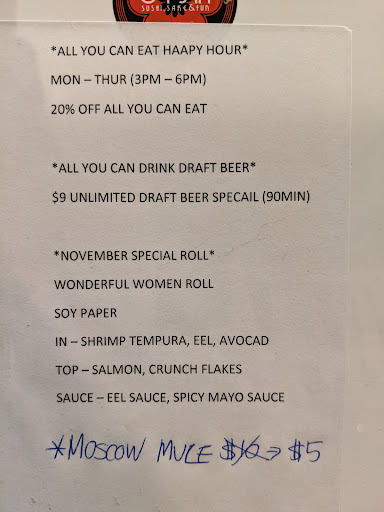 SUSHI, SAKE & FUN
*ALL YOU CAN EAT HAAPY HOUR*
MON – THUR (3PM – 6PM)
20% OFF ALL YOU CAN EAT
*ALL YOU CAN DRINK DRAFT BEER*
$9 UNLIMITED DRAFT BEER SPECAIL (90MIN)
*NOVEMBER SPECIAL ROLL*
WONDERFUL WOMEN ROLL
SOY PAPER
IN – SHRIMP TEMPURA, EEL, AVOCAD
TOP – SALMON, CRUNCH FLAKES
SAUCE – EEL SAUCE, SPICY MAYO SAUCE
*MOSCOW MULE $10 → $5